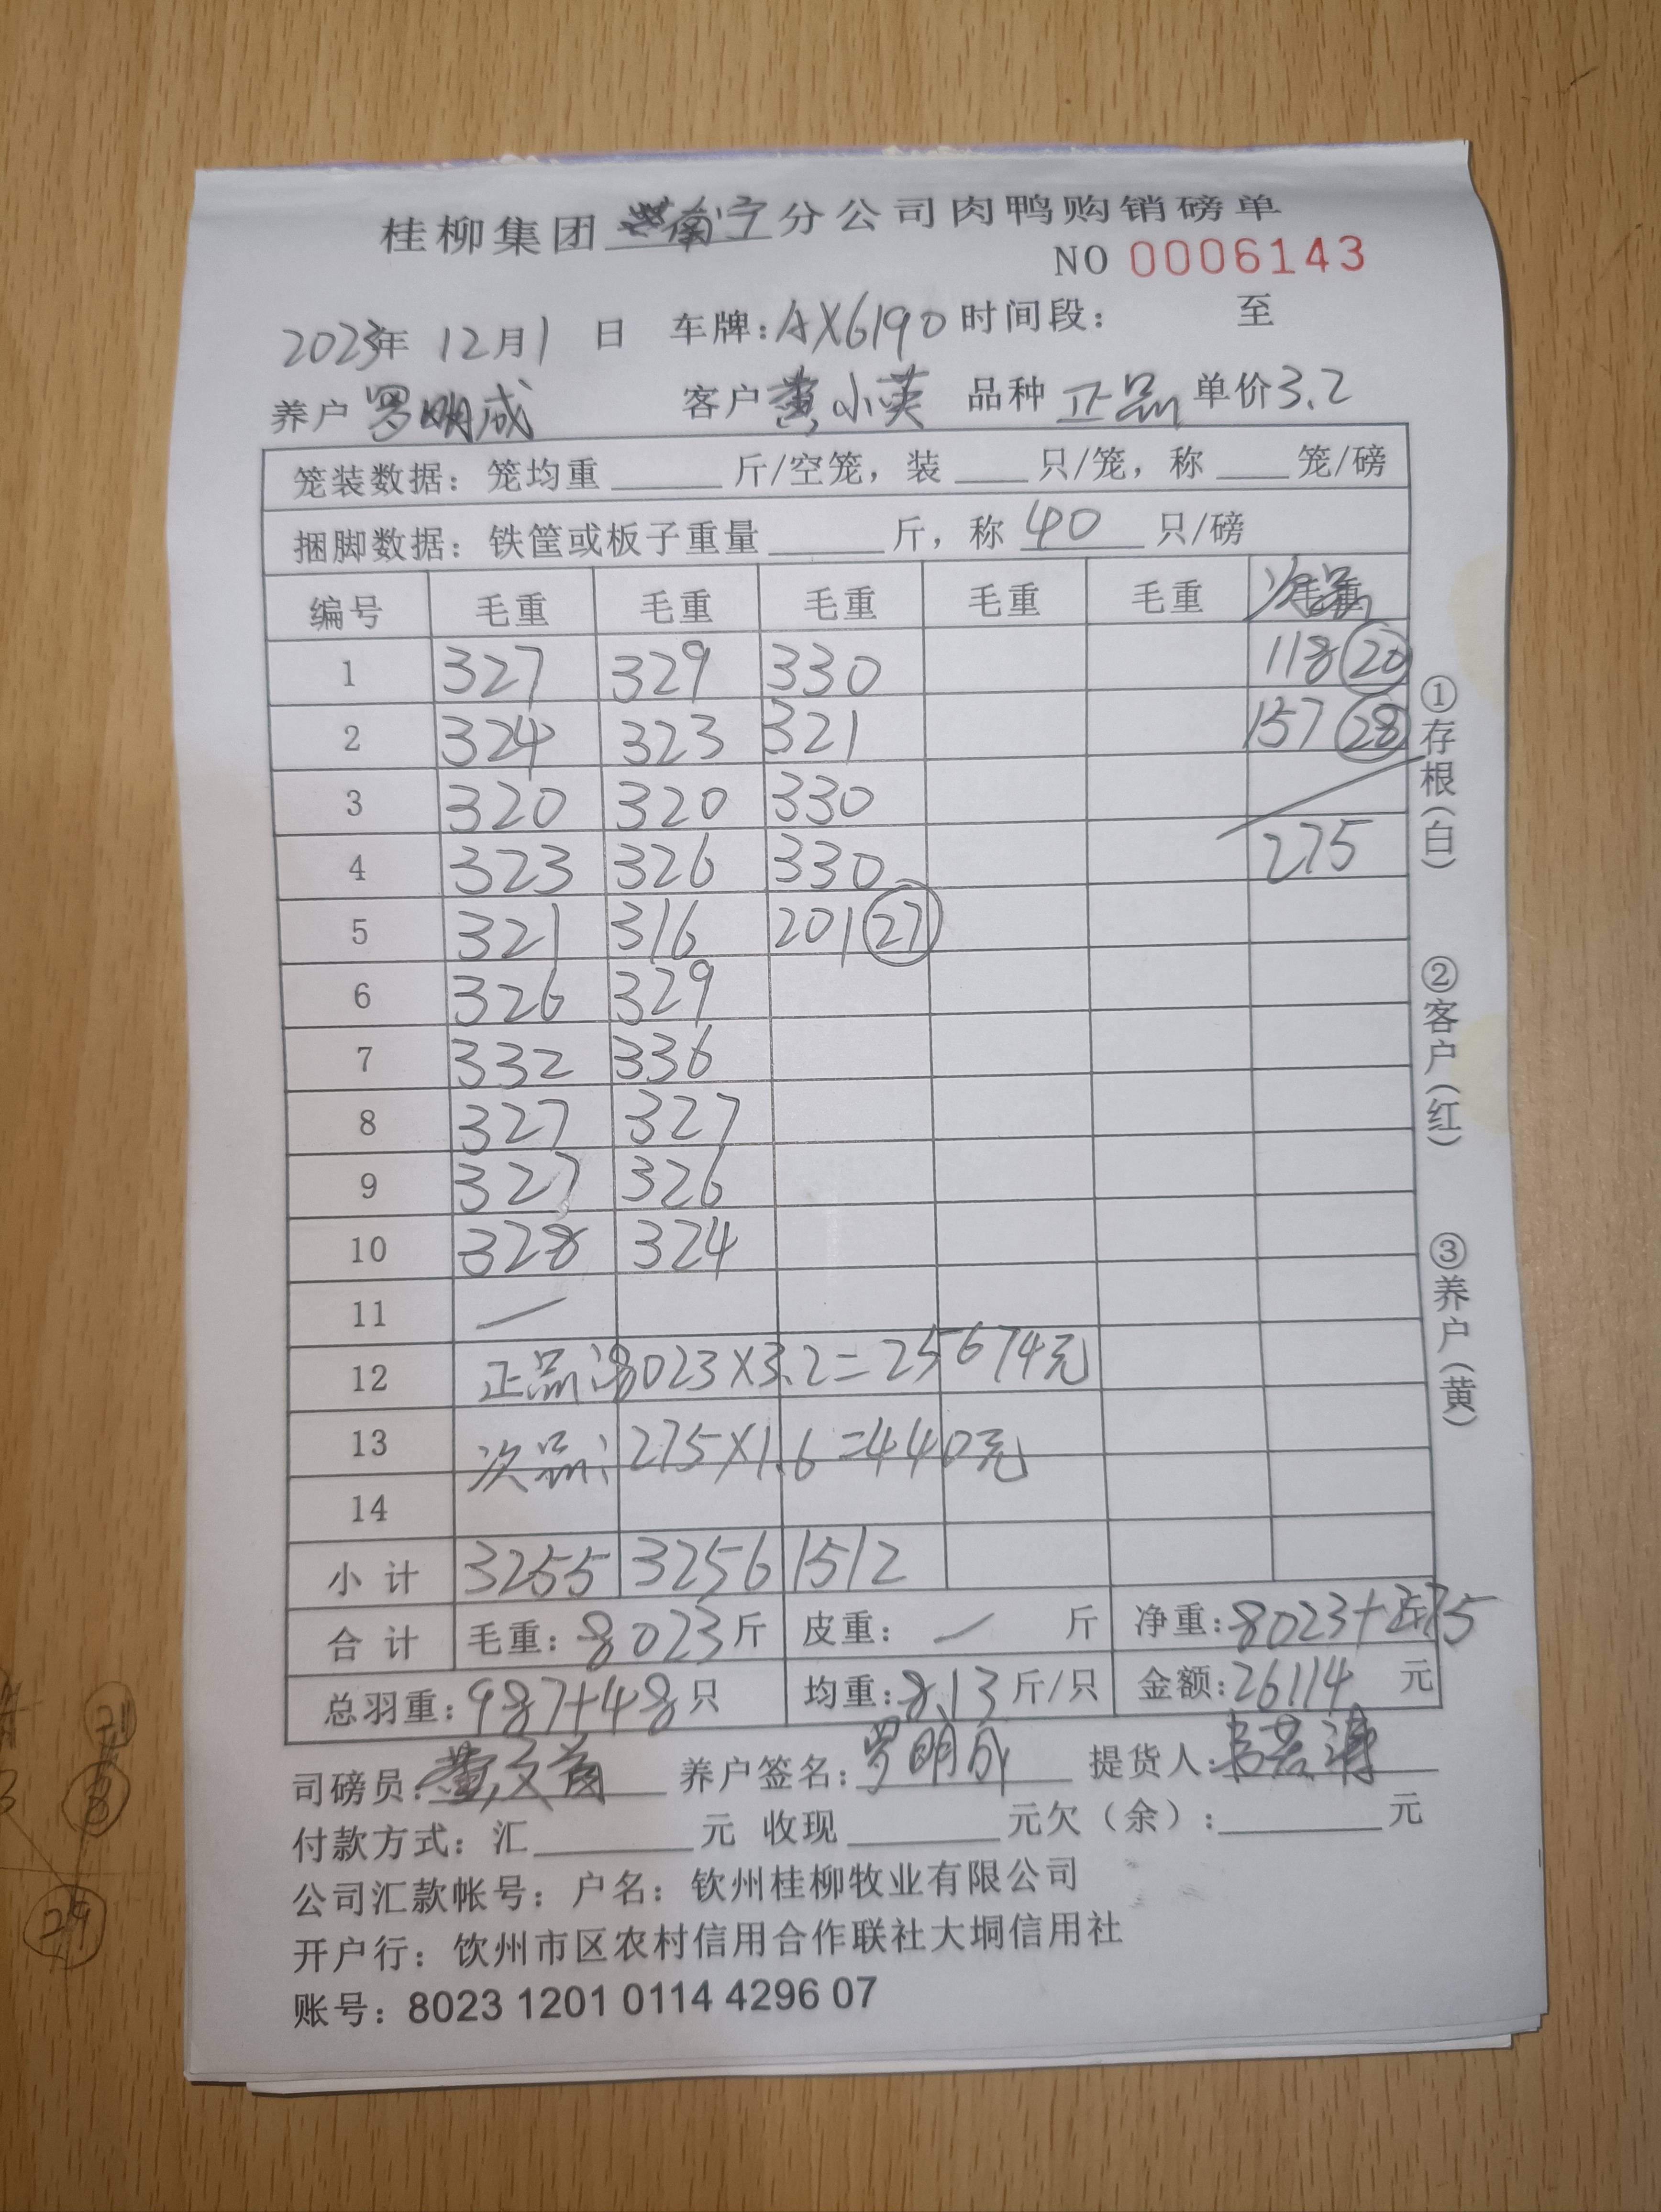 桂柳集团 南宁 分公司肉鸭购销磅单
NO 0006143
2023年 12月1 日 车牌:AX6190 时间段: 至
养户 罗明成 客户 黄小英 品种 正品 单价3.2
笼装数据: 笼均重 ______ 斤/空笼, 装 ____ 只/笼, 称 ____ 笼/磅
捆脚数据: 铁筐或板子重量 ______ 斤, 称 40 只/磅
编号 毛重 毛重 毛重 毛重 毛重 次品
1 327 329 330 118 ⑳
2 324 323 321 157 ㉘
3 320 320 330
4 323 326 330 275
5 321 316 201 ㉗
6 326 329
7 332 336
8 327 327
9 327 326
10 328 324
11 —
12 正品:8023×3.2=25674元
13 次品:275×1.6=440元
14
小计 3255 3256 1512
合计 毛重:8023斤 皮重: — 斤 净重:8023+275
总羽重:987+48只 均重:8.13斤/只 金额:26114 元
司磅员: 养户签名:罗明成 提货人:
付款方式: 汇________元 收现________元欠(余):________元
公司汇款帐号: 户名: 钦州桂柳牧业有限公司
开户行: 钦州市区农村信用合作联社大垌信用社
账号: 8023 1201 0114 4296 07
①存根(白)
②客户(红)
③养户(黄)
㉙